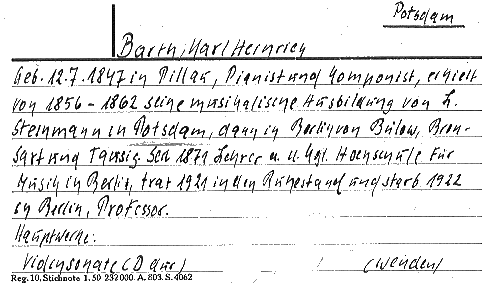 Potsdam
Barth, Karl Heinrich
Geb. 12.7.1847 in Pillau, Pianist und Komponist, erhielt
von 1856 - 1862 seine musikalische Ausbildung von L.
Steinmann in Potsdam, dann in Berlin von Bülow, Bron-
sart und Tausig. Seit 1871 Lehrer a. d. Kgl. Hochschule für
Musik in Berlin, trat 1921 in den Ruhestand und starb 1922
in Berlin, Professor.
Hauptwerke:
Violinsonate (D dur) (wenden)
Reg. 10, Stichnote 1. 50 232000. A. 803. S. 4062